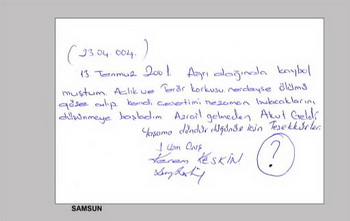 (23.04.004.)
13 Temmuz 2001. Ağrı dağında kaybol
muştum. Açlık ve Terör korkusu nerdeyse ölümü
göze alıp kendi cesetimi ne zaman bulacaklarını
düşünmeye başladım Azrail gelmeden Akut Geldi
Yaşama döndür düğünüz için Teşekkürler.
Kerem KESKİN
?
SAMSUN